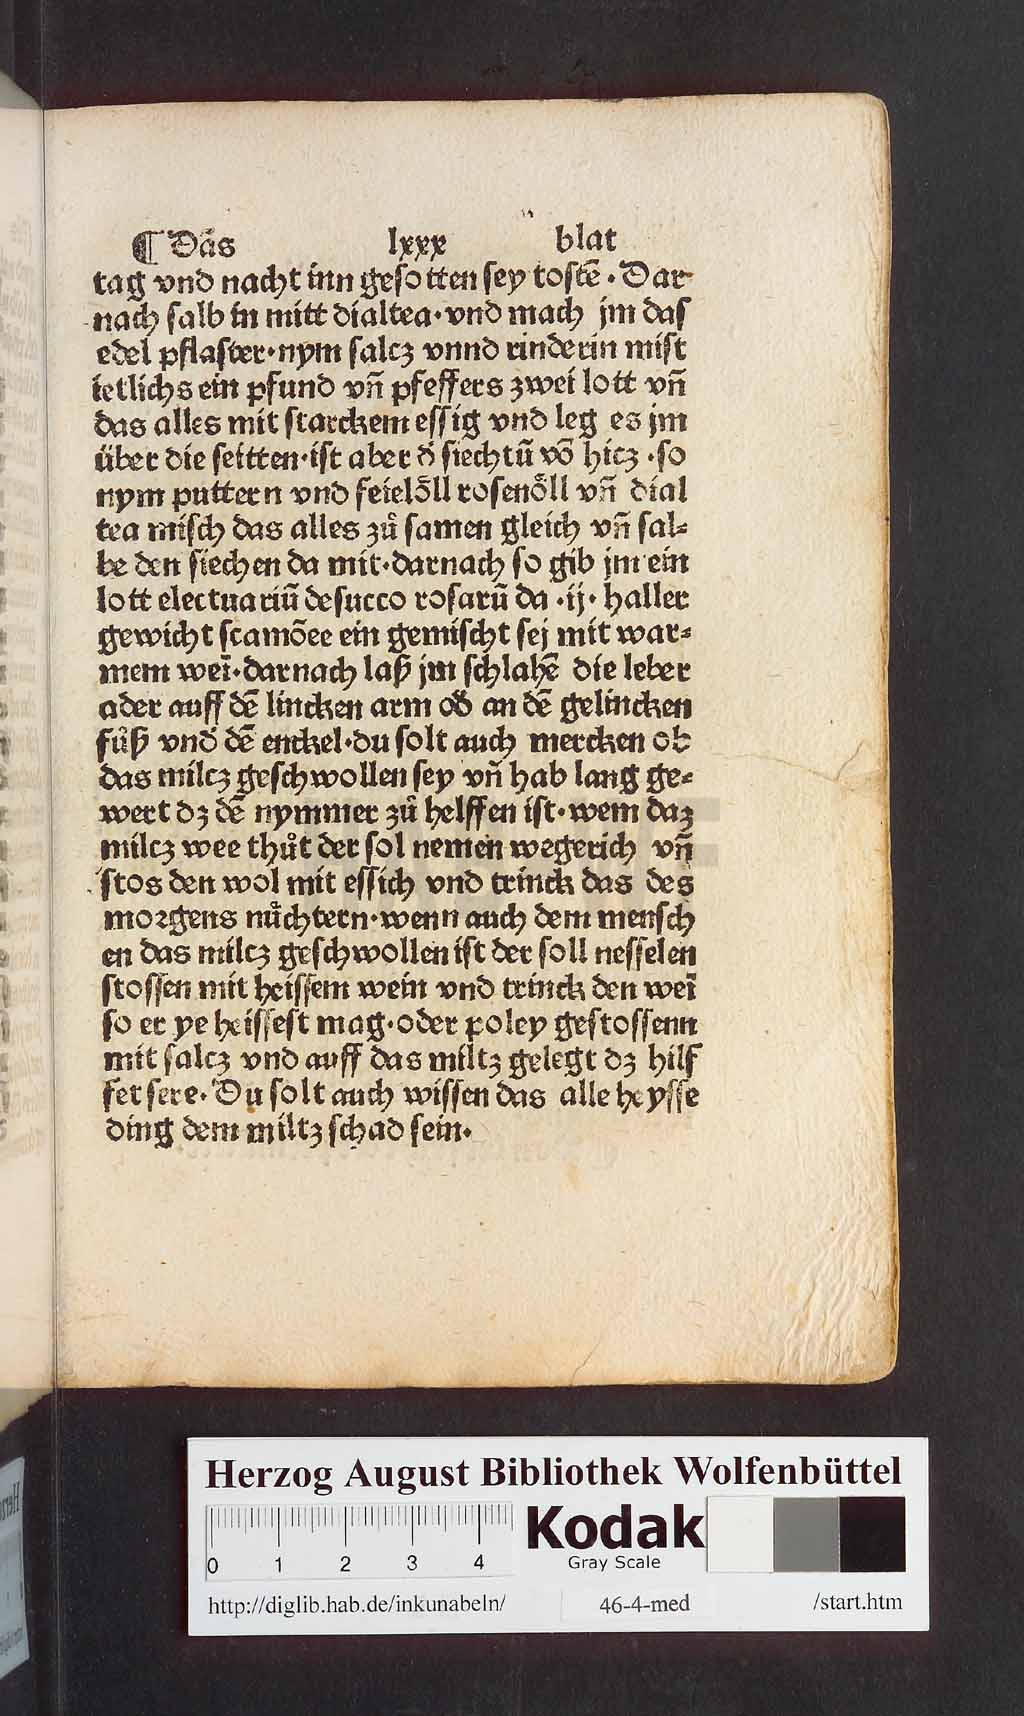 ¶ Das lxxx blat
tag vnd nacht inn gesotten sey tostē · Dar
nach salb in mitt dialtea · vnd mach jm das
edel pflaster · nym salcz vnnd rinderin mist
ietlichs ein pfund vñ pfeffers zwei lott vñ
das alles mit starckem essig vnd leg es jm
über die seitten · ist aber d̕ siechtū vō hicz · so
nym puttern vnd feielöll rosenöll vñ dial
tea misch das alles zů samen gleich vñ sal⸗
be den siechen da mit · darnach so gib jm ein
lott electuariū desucco rosarū da · ij · haller
gewicht scamōee ein gemischt sej mit war⸗
mem weī · darnach laß jm schlahē die leber
ader auff dē lincken arm od̕ an dē gelincken
fůß vnd̕ dē enckel · du solt auch mercken ob
das milcz geschwollen sey vñ hab lang ge⸗
wert dz dē nymmer zů helffen ist · wem daz
milcz wee thůt der sol nemen wegerich vñ
stos den wol mit essich vnd trinck das des
morgens nůchtern · wenn auch dem mensch
en das milcz geschwollen ist der soll nesselen
stossen mit heissem wein vnd trinck den weī
so er ye heissest mag · oder poley gestossenn
mit salcz vnd auff das miltz gelegt dz hilf
fet sere · Du solt auch wissen das alle heysse
ding dem miltz schad sein ·
Herzog August Bibliothek Wolfenbüttel
0 1 2 3 4
Kodak
Gray Scale
http://diglib.hab.de/inkunabeln/ 46-4-med /start.htm